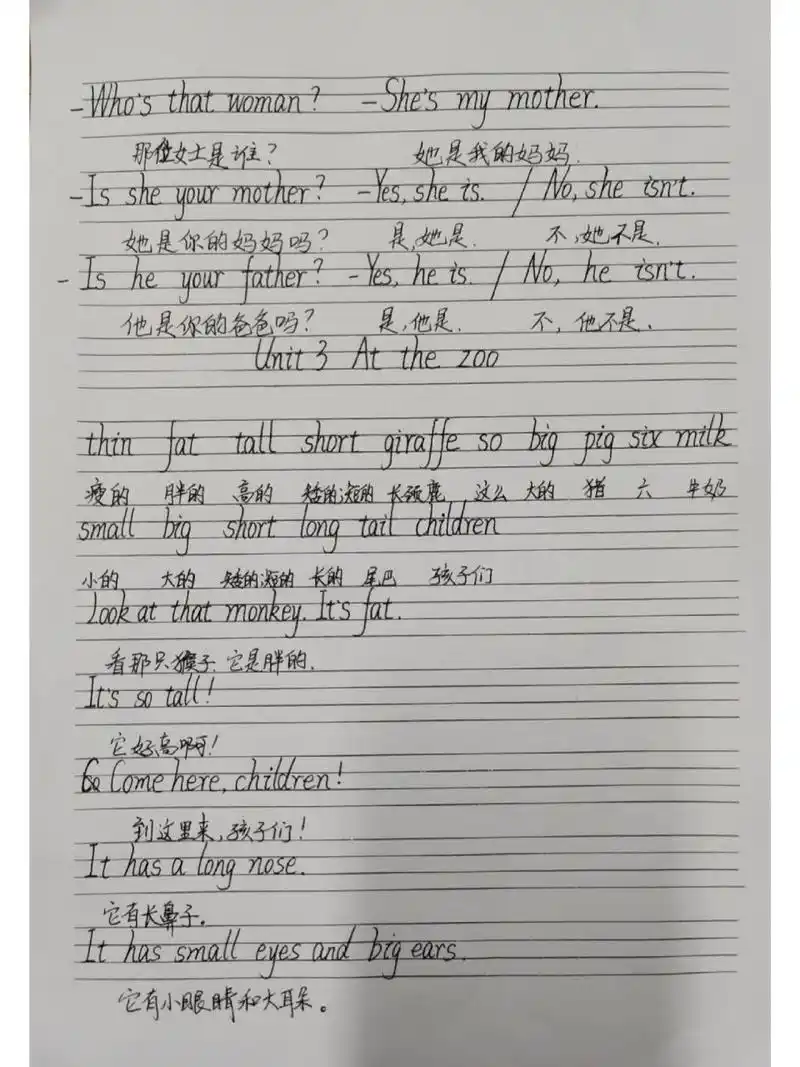 -Who's that woman? -She's my mother.
那位女士是谁? 她是我的妈妈.
-Is she your mother? -Yes, she is. / No, she isn't.
她是你的妈妈吗? 是,她是. 不,她不是.
-Is he your father? -Yes, he is. / No, he isn't.
他是你的爸爸吗? 是,他是. 不,他不是.
Unit 3 At the zoo
thin fat tall short giraffe so big pig six milk
瘦的 胖的 高的 矮的短的 长颈鹿 这么 大的 猪 六 牛奶
small big short long tail children
小的 大的 矮的短的 长的 尾巴 孩子们
Look at that monkey. It's fat.
看那只猴子. 它是胖的.
It's so tall!
它好高啊!
Come here, children!
到这里来,孩子们!
It has a long nose.
它有长鼻子。
It has small eyes and big ears.
它有小眼睛和大耳朵。